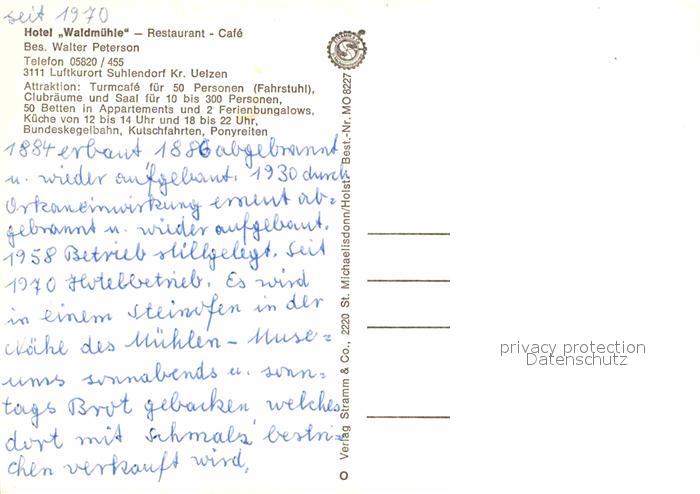 seit 1970
Hotel „Waldmühle“ – Restaurant - Café
Bes. Walter Peterson
Telefon 05820 / 455
3111 Luftkurort Suhlendorf Kr. Uelzen
Attraktion: Turmcafé für 50 Personen (Fahrstuhl),
Clubräume und Saal für 10 bis 300 Personen,
50 Betten in Appartements und 2 Ferienbungalows,
Küche von 12 bis 14 Uhr und 18 bis 22 Uhr,
Bundeskegelbahn, Kutschfahrten, Ponyreiten
1884 erbaut 1886 abgebrannt
u. wieder aufgebaut. 1930 durch
Orkaneinwirkung erneut ab=
gebrannt u. wieder aufgebaut.
1958 Betrieb stillgelegt. Seit
1970 Hotelbetrieb. Es wird
in einem Steinofen in der
Nähe des Mühlen - Muse=
ums sonnabends u. sonn=
tags Brot gebacken welches
dort mit Schmalz bestri=
chen verkauft wird.
Verlag Stramm & Co., 2220 St. Michaelisdonn/Holst. Best.-Nr. MO 8227
privacy protection
Datenschutz